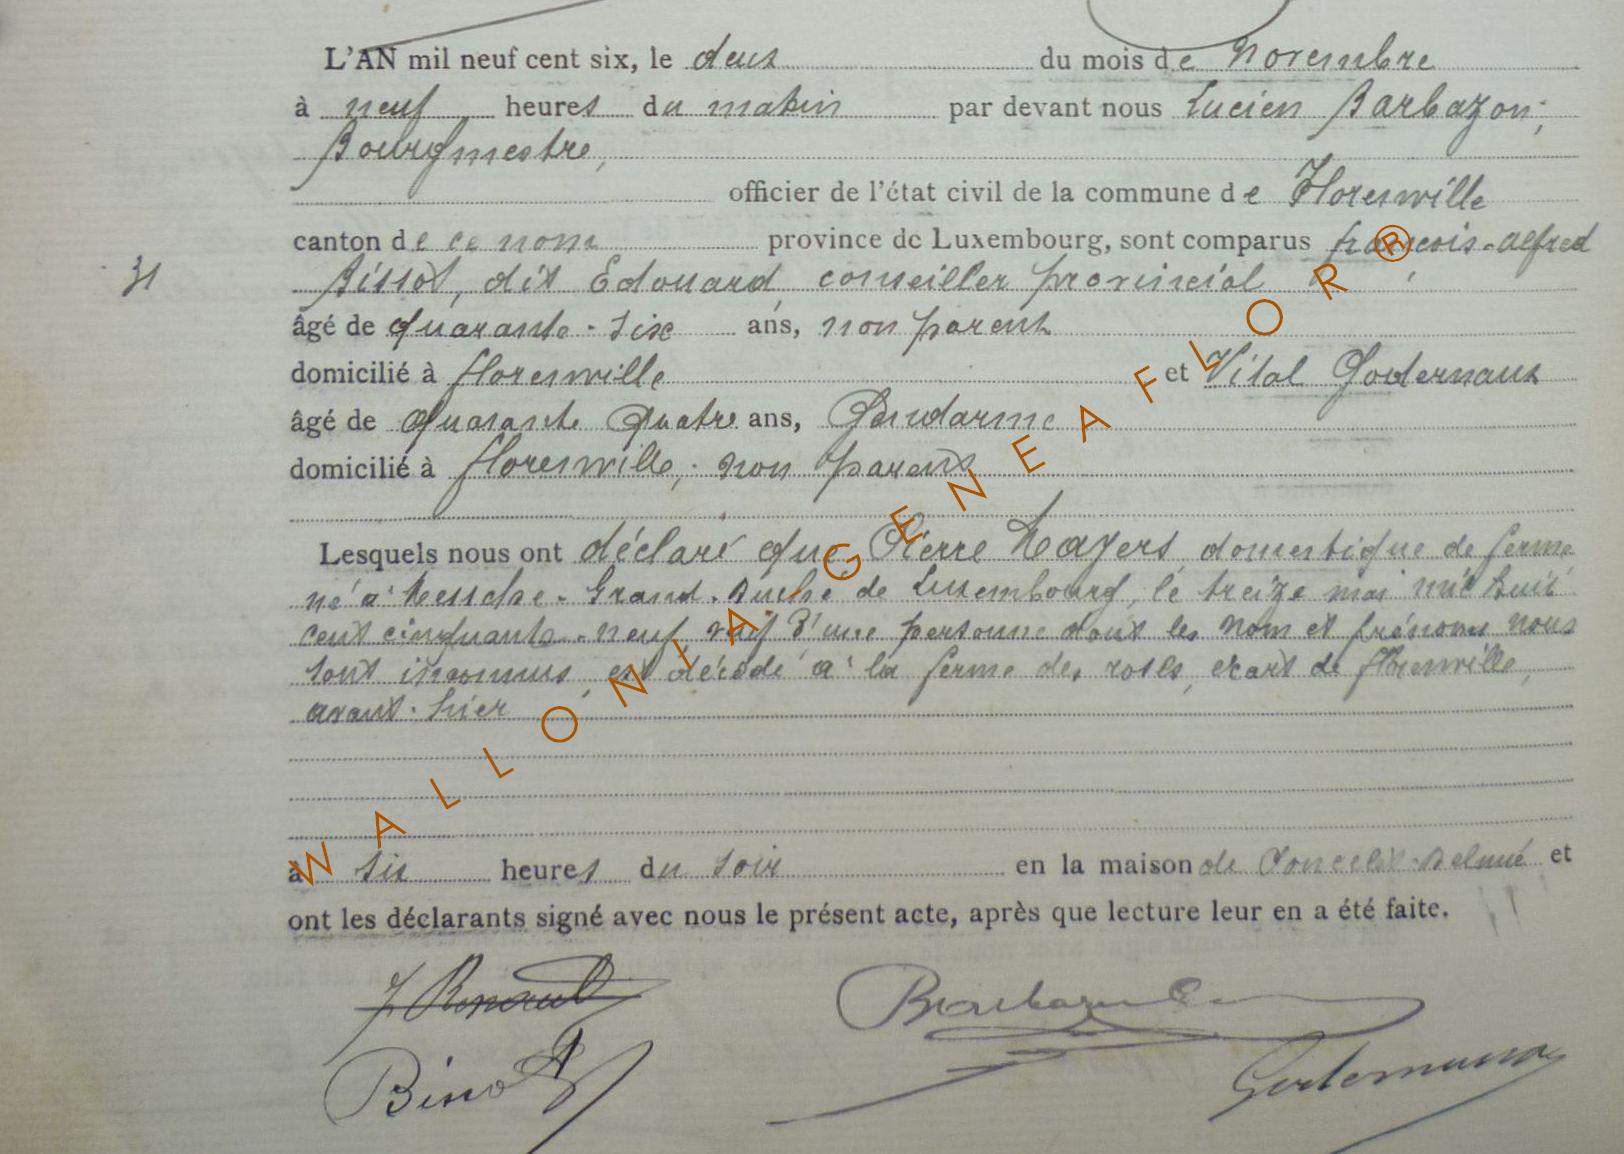 L'AN mil neuf cent six, le deux du mois de Novembre
à neuf heures du matin par devant nous Lucien Barbazon,
Bourgmestre,
officier de l'état civil de la commune de Florenville
canton de ce nom province de Luxembourg, sont comparus François-Alfred
31
dit Edouard, conseiller provincial
âgé de quarante-six ans, non parent
domicilié à Florenville et Vital
âgé de quarante quatre ans, Gendarme
domicilié à Florenville, non parent
Lesquels nous ont déclaré que Pierre domestique de ferme
né à Grand-Duché de Luxembourg, le treize mai mil huit
cent cinquante-neuf, veuf d'une personne dont les nom et prénoms nous
sont inconnus, est décédé à la ferme des roses, écart de Florenville,
avant-hier
à six heures du soir en la maison de et
ont les déclarants signé avec nous le présent acte, après que lecture leur en a été faite.
WALLONIA GENEAFLOR®